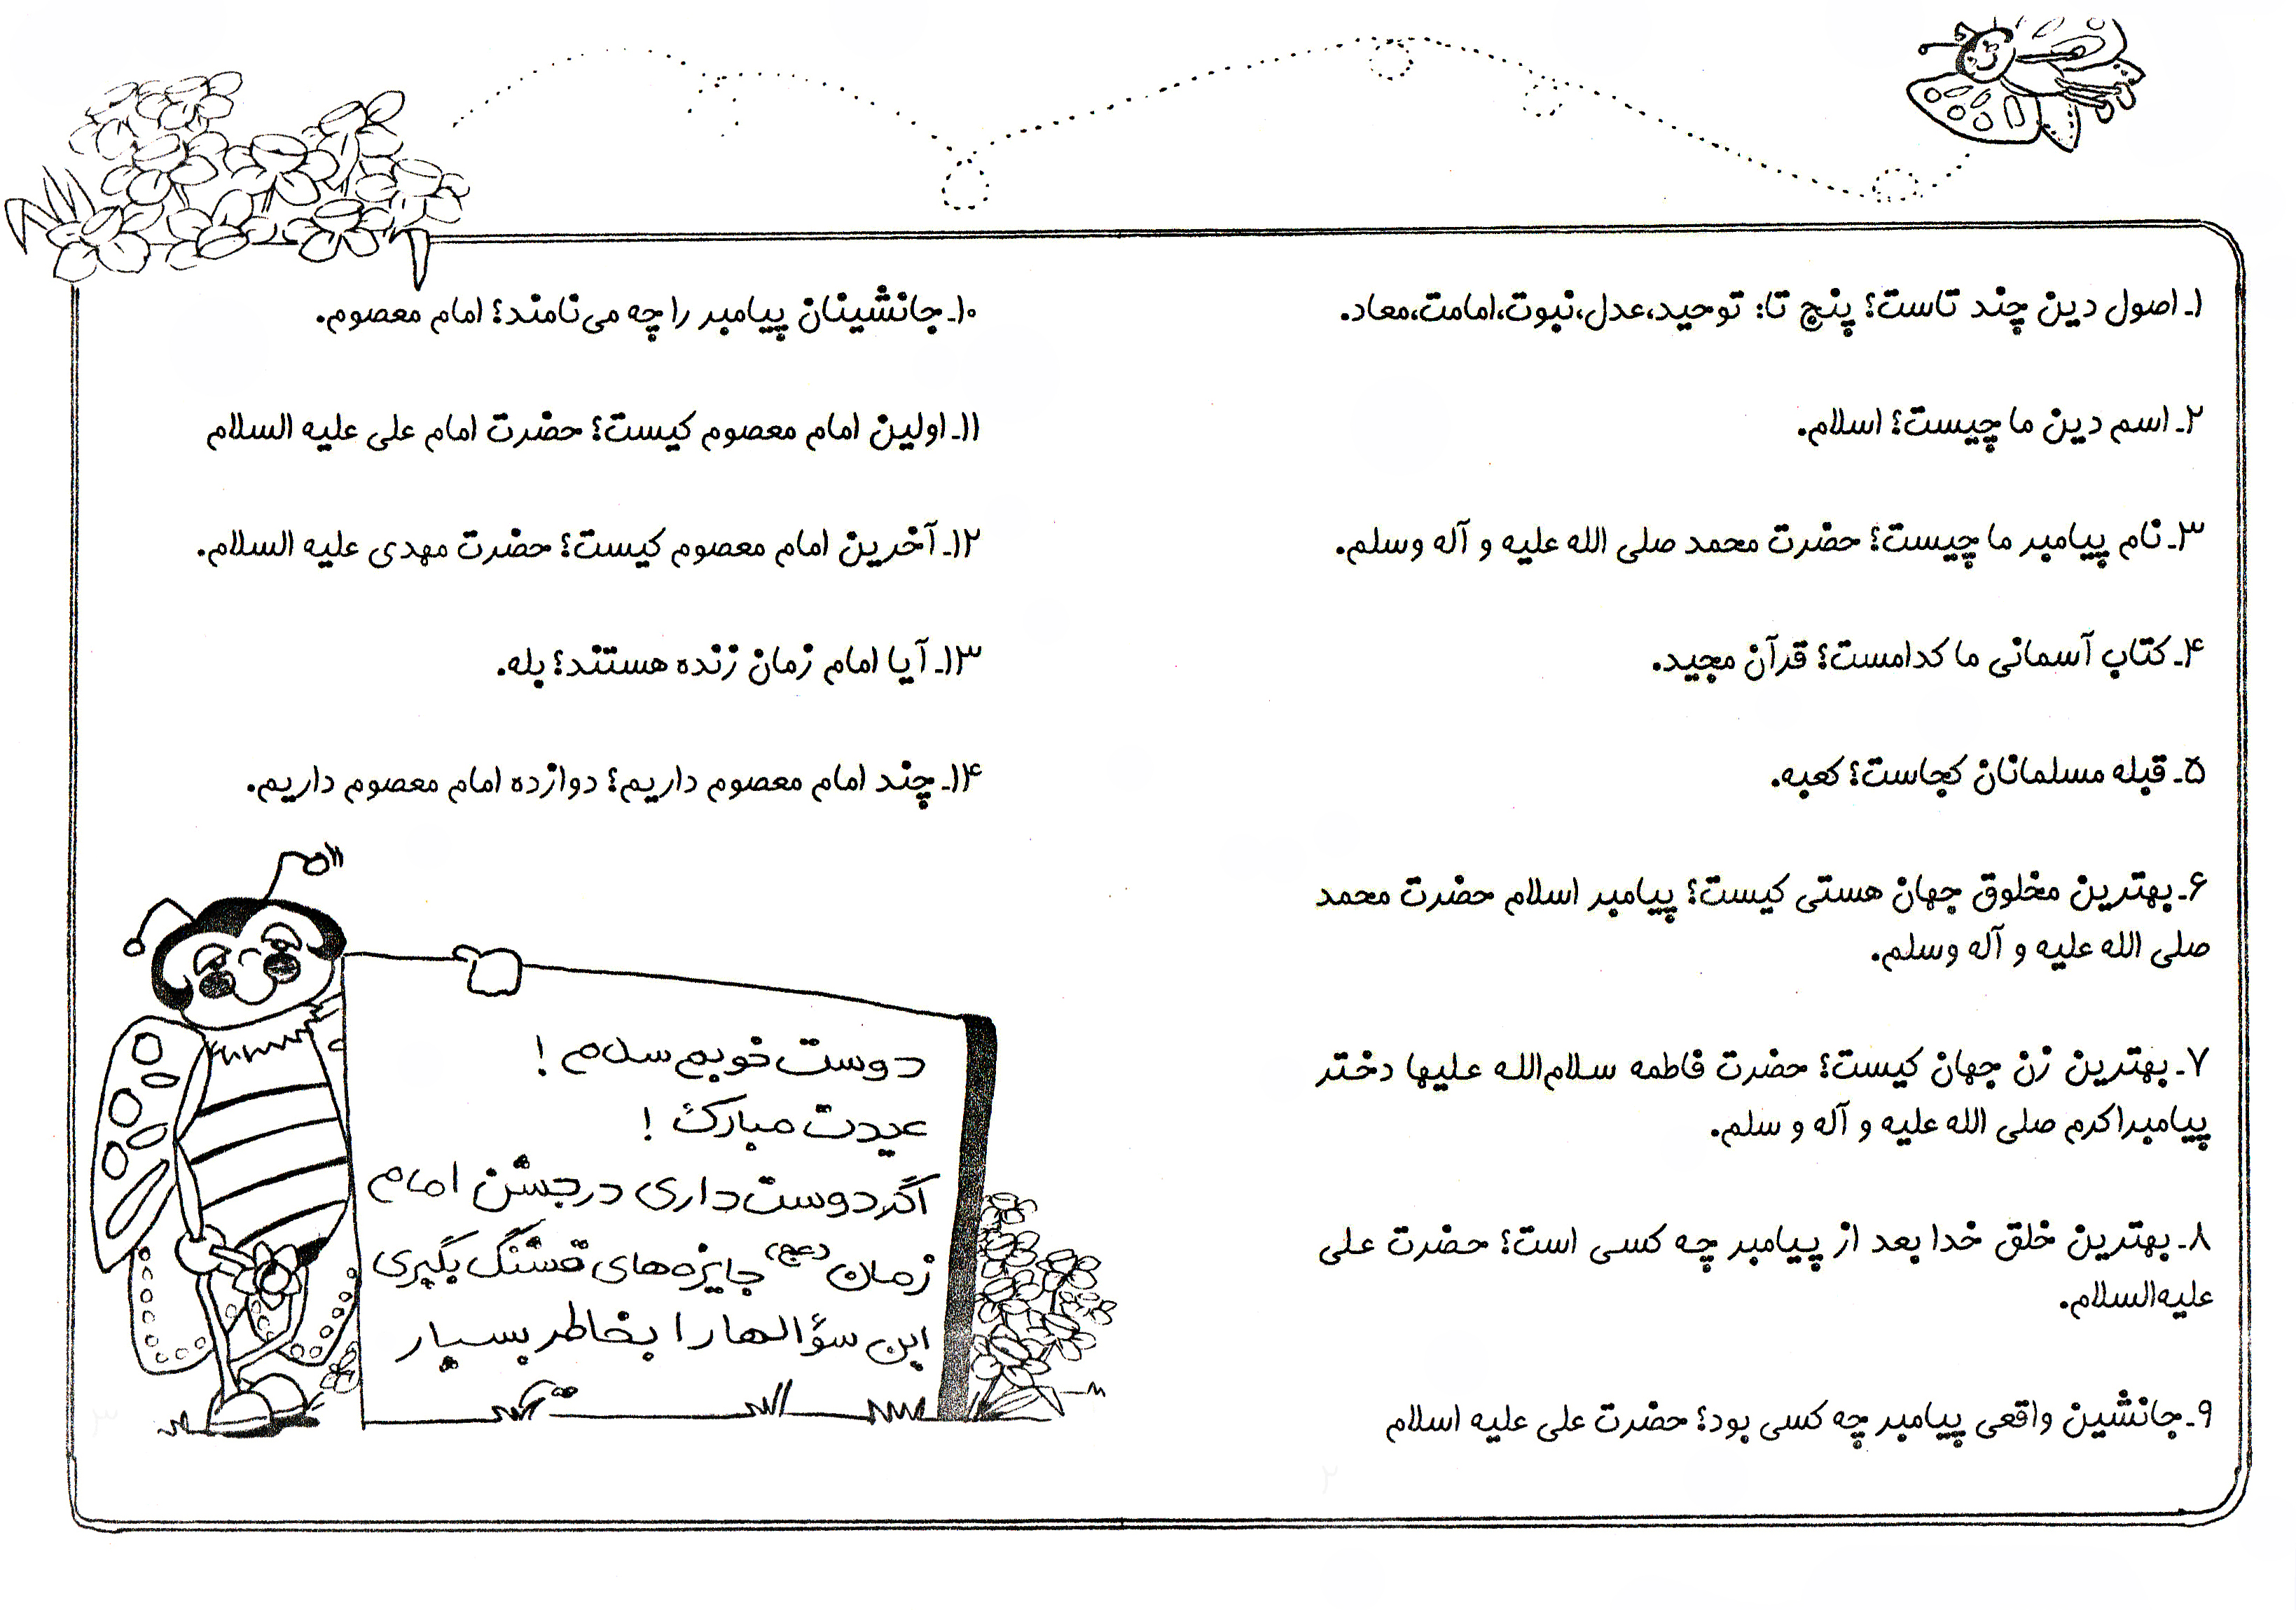 ۱ـ اصول دین چند تاست؟ پنچ تا: توحید،عدل،نبوت،امامت،معاد.
۲ـ اسم دین ما چیست؟ اسلام.
۳ـ نام پیامبر ما چیست؟ حضرت محمد صلی الله علیه و آله وسلم.
۴ـ کتاب آسمانی ما کدامست؟ قرآن مجید.
۵ـ قبله مسلمانان کجاست؟ کعبه.
۶ـ بهترین مخلوق جهان هستی کیست؟ پیامبر اسلام حضرت محمد
صلی الله علیه و آله وسلم.
۷ـ بهترین زن جهان کیست؟ حضرت فاطمه سلام‌الله علیها دختر
پیامبراکرم صلی الله علیه و آله و سلم.
۸ـ بهترین خلق خدا بعد از پیامبر چه کسی است؟ حضرت علی
علیه‌السلام.
۹ـ جانشین واقعی پیامبر چه کسی بود؟ حضرت علی علیه اسلام
۱۰ـ جانشینان پیامبر را چه می‌نامند؟ امام معصوم.
۱۱ـ اولین امام معصوم کیست؟ حضرت امام علی علیه السلام
۱۲ـ آخرین امام معصوم کیست؟ حضرت مهدی علیه السلام.
۱۳ـ آیا امام زمان زنده هستند؟ بله.
۱۴ـ چند امام معصوم داریم؟ دوازده امام معصوم داریم.
دوست خوبم سلام !
عیدت مبارک !
اگر دوست داری در جشن امام
زمان (عج) جایزه های قشنگ بگیری
این سؤالها را بخاطر بسپار